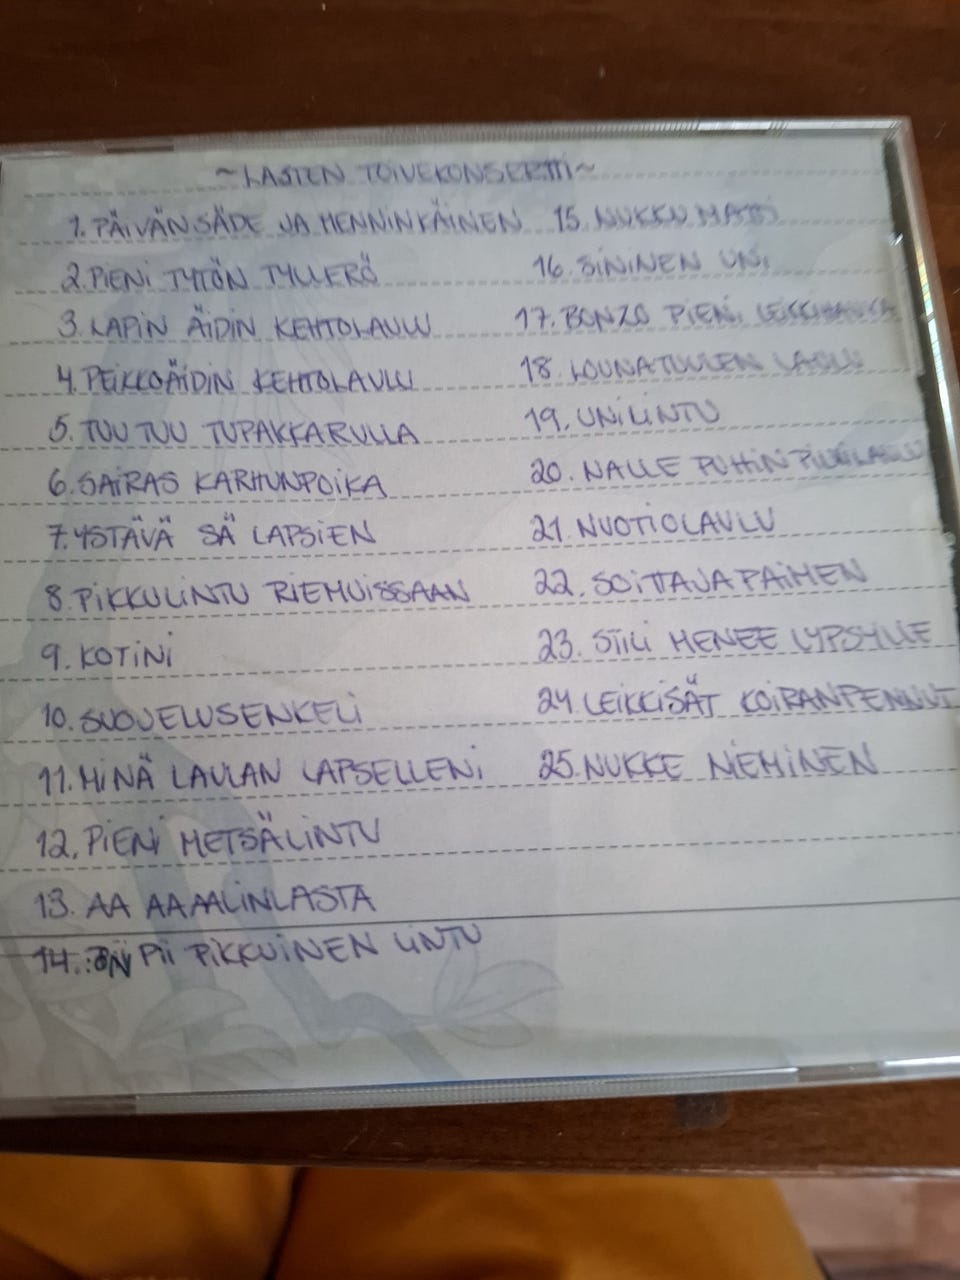 ~LASTEN TOIVEKONSERTTI~
1. PÄIVÄNSÄDE JA MENNINKÄINEN
2. PIENI TYTÖN TYLLERÖ
3. LAPIN ÄIDIN KEHTOLAULU
4. PEIKKOÄIDIN KEHTOLAULU
5. TUU TUU TUPAKKARULLA
6. SAIRAS KARHUNPOIKA
7. YSTÄVÄ SÄ LAPSIEN
8. PIKKULINTU RIEMUISSAAN
9. KOTINI
10. SUOJELUSENKELI
11. MINÄ LAULAN LAPSELLENI
12. PIENI METSÄLINTU
13. AA AAAALINLASTA
14. ON PII PIKKUINEN LINTU
15. NUKKU MATTI
16. SININEN UNI
17. BONZO PIENI LEIKKIHAUVA
18. LOUNATUULEN LAULU
19. UNILINTU
20. NALLE PUHIN PILVILAULU
21. NUOTIOLAULU
22. SOITTAJAPAIMEN
23. SIILI MENEE LYPSYLLE
24. LEIKKISÄT KOIRANPENNUT
25. NUKKE NIEMINEN